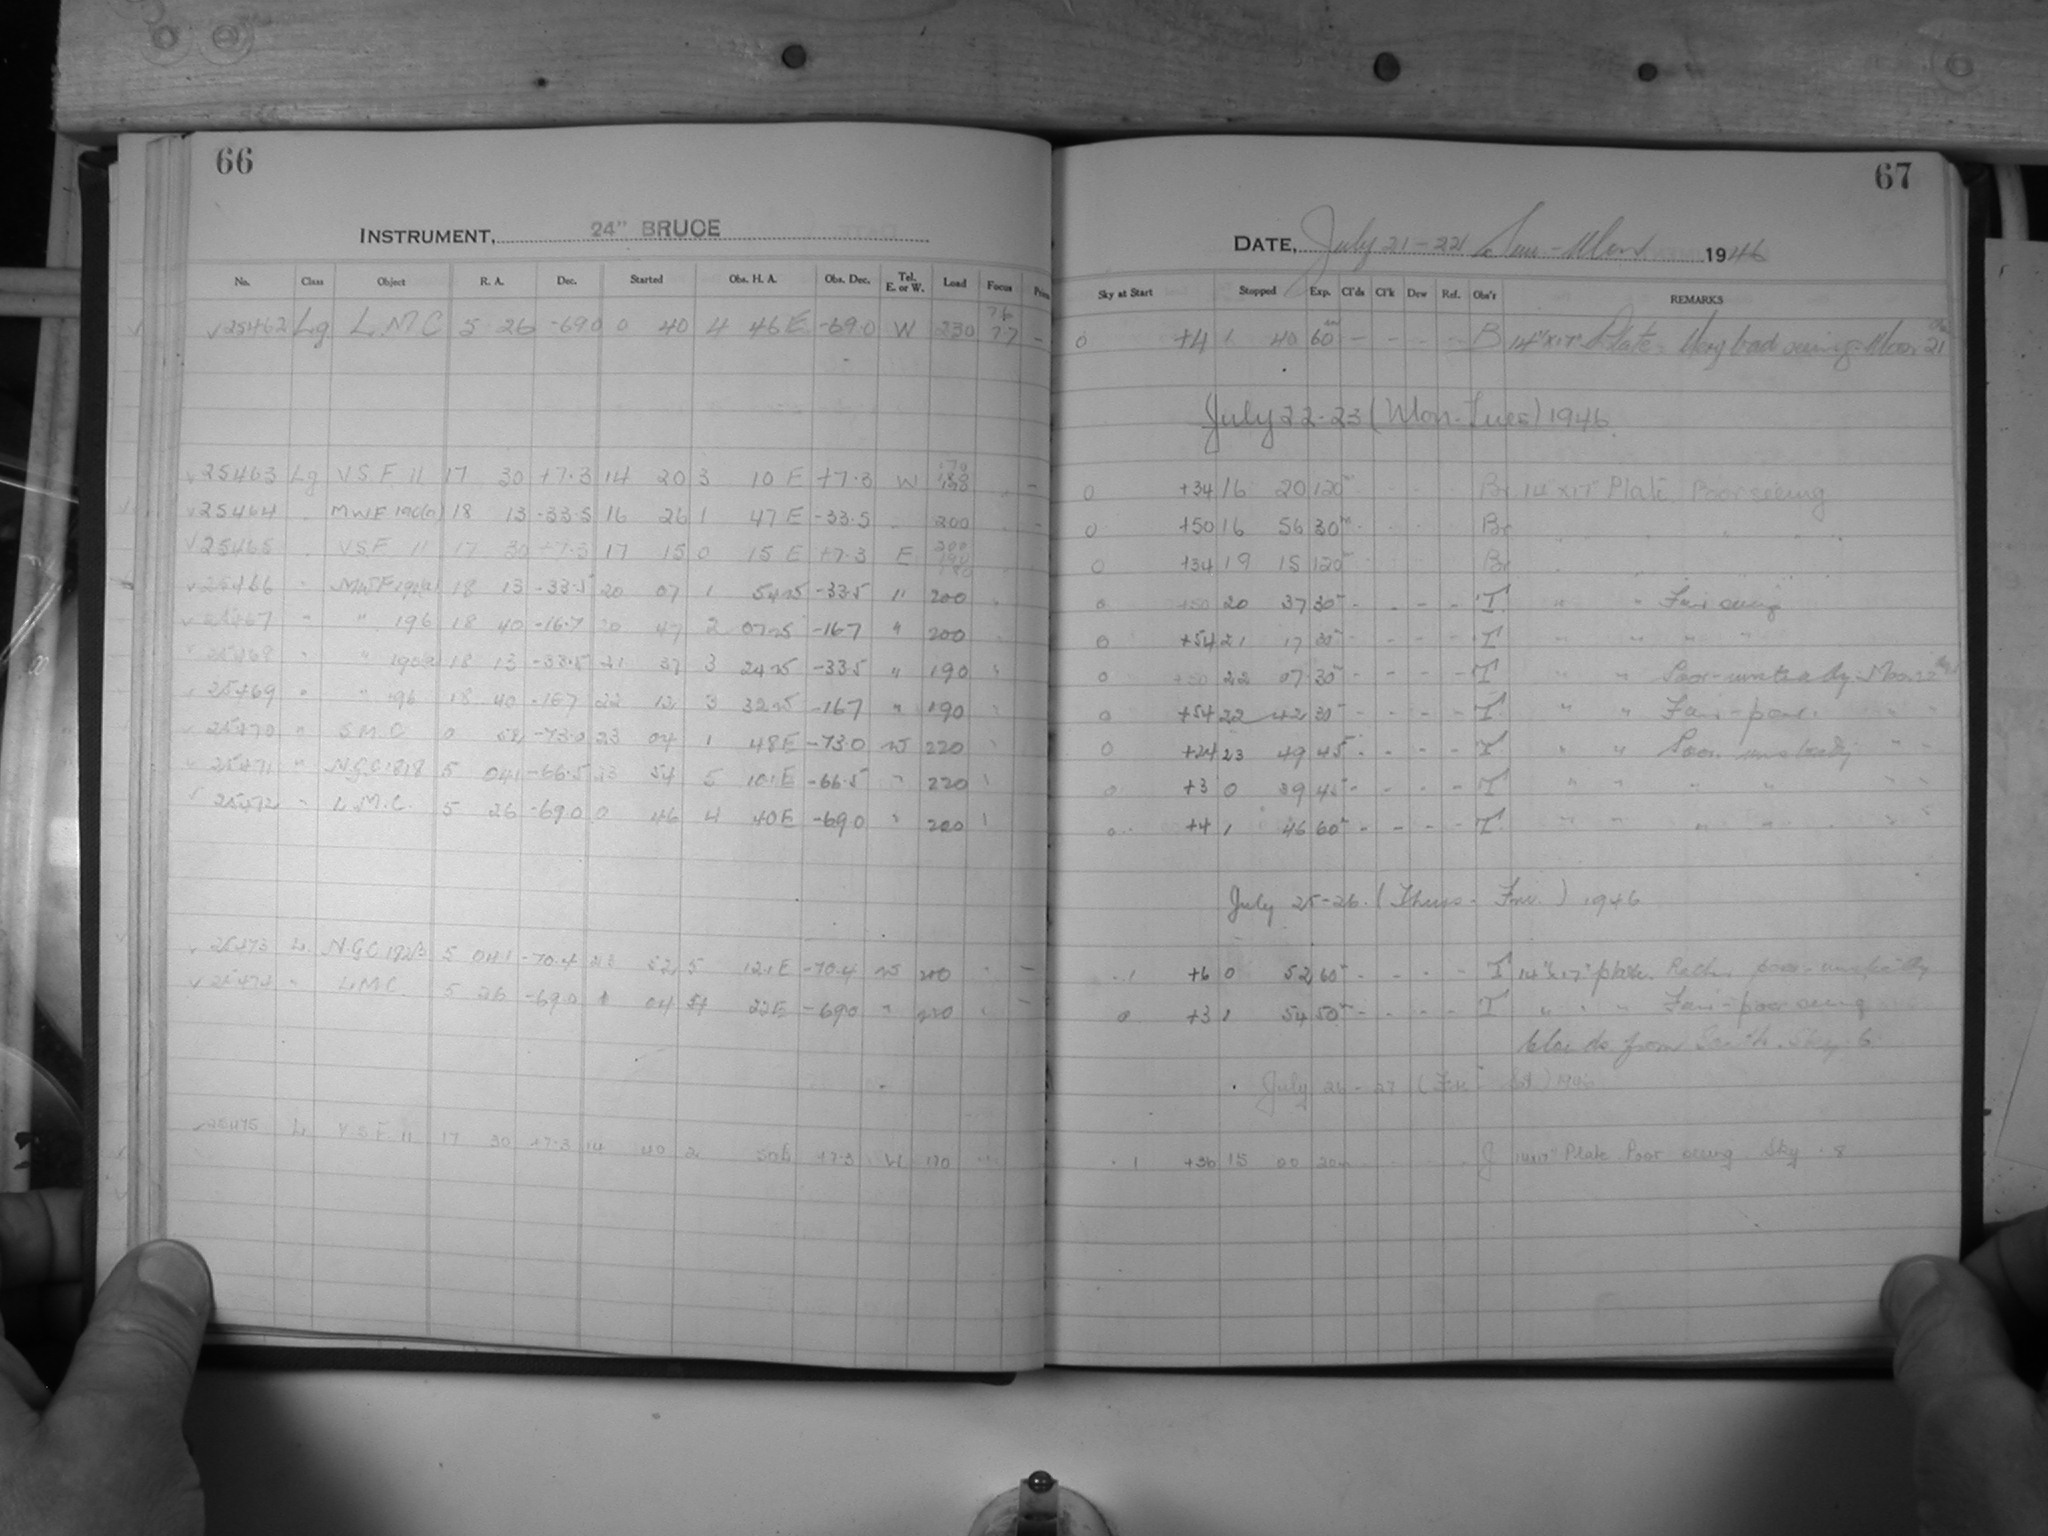 66
INSTRUMENT, 24" BRUCE
No. Class Object R. A. Dec. Started Obs. H. A. Obs. Dec. Tel. E. or W. Load Focus
25462 Lg L.M.C 5 26 -69.0 0 40 4 46 E -69.0 W 230 7.6 7.7 -
25463 Lg V.S.F. 11 17 30 +7.3 14 20 3 10 E +7.3 W
25464 " MWF 190(a) 18 13 -33.5 16 26 1 47 E -33.5 200
25465 " V.S.F. 11 17 30 +7.3 17 15 0 15 E +7.3 E 200 190 180
25466 " MWF 190(a) 18 13 -33.5 20 07 1 54 W -33.5 " 200
25467 " " 196 18 40 -16.7 20 47 2 07 W -16.7 " 200
25468 " " 190(a) 18 13 -33.5 21 37 3 24 W -33.5 " 190
25469 " " 196 18 40 -16.7 22 12 3 32 W -16.7 " 190
25470 " S.M.C. 0 52 -73.0 23 04 1 48 E -73.0 W 220
25471 " N.G.C. 1818 5 04.1 -66.5 23 54 5 10.1 E -66.5 " 220
25472 " L.M.C. 5 26 -69.0 0 46 4 40 E -69.0 " 200
25473 L. N.G.C. 5 04.1 -70.4 23 52 5 12.1 E -70.4 W
25474 " L.M.C. 5 26 -69.0 1 04 4 22 E -69.0 "
25475 L. V.S.F. 11 17 30 +7.3 14 40 2 50 E +7.3 W 170
67
DATE, July 21-22 Sun-Mon 1946
Sky at Start Stopped Exp. Cl'ds Cl'k Dew Ref. Obs'r REMARKS
0 +4 1 40 60 - - - - B 14"x17" Plate. Very bad seeing. Moon 21
July 22-23 (Mon-Tues) 1946
0 +34 16 20 120 Br 14"x17" Plate. Poor seeing
0 +50 16 56 30 Br " " " "
0 +34 19 15 120 Br " " " "
0 +50 20 37 30 - - - - T " " Fair seeing
0 +54 21 17 30 - - - - T " " " "
0 +50 22 07 30 - - - - T " " Poor-unsteady. Moon 22
0 +54 22 42 30 - - - - T " " Fair-poor. " "
0 +24 23 49 45 - - - - T " " Poor. unsteady " "
0 +3 0 39 45 - - - - T " " " " " "
0 +4 1 46 60 - - - - T " " " " " "
July 25-26. (Thurs-Fri.) 1946
.1 +6 0 52 60 - - - - T 14"x17" plate. Rather poor-unsteady
0 +3 1 54 50 - - - - T " " " Fair-poor seeing
Clouds from South. Sky 6.
July 26-27 (Fri - Sat) 1946
.1 +36 15 00 20 J 14x17" Plate Poor seeing. Sky .8